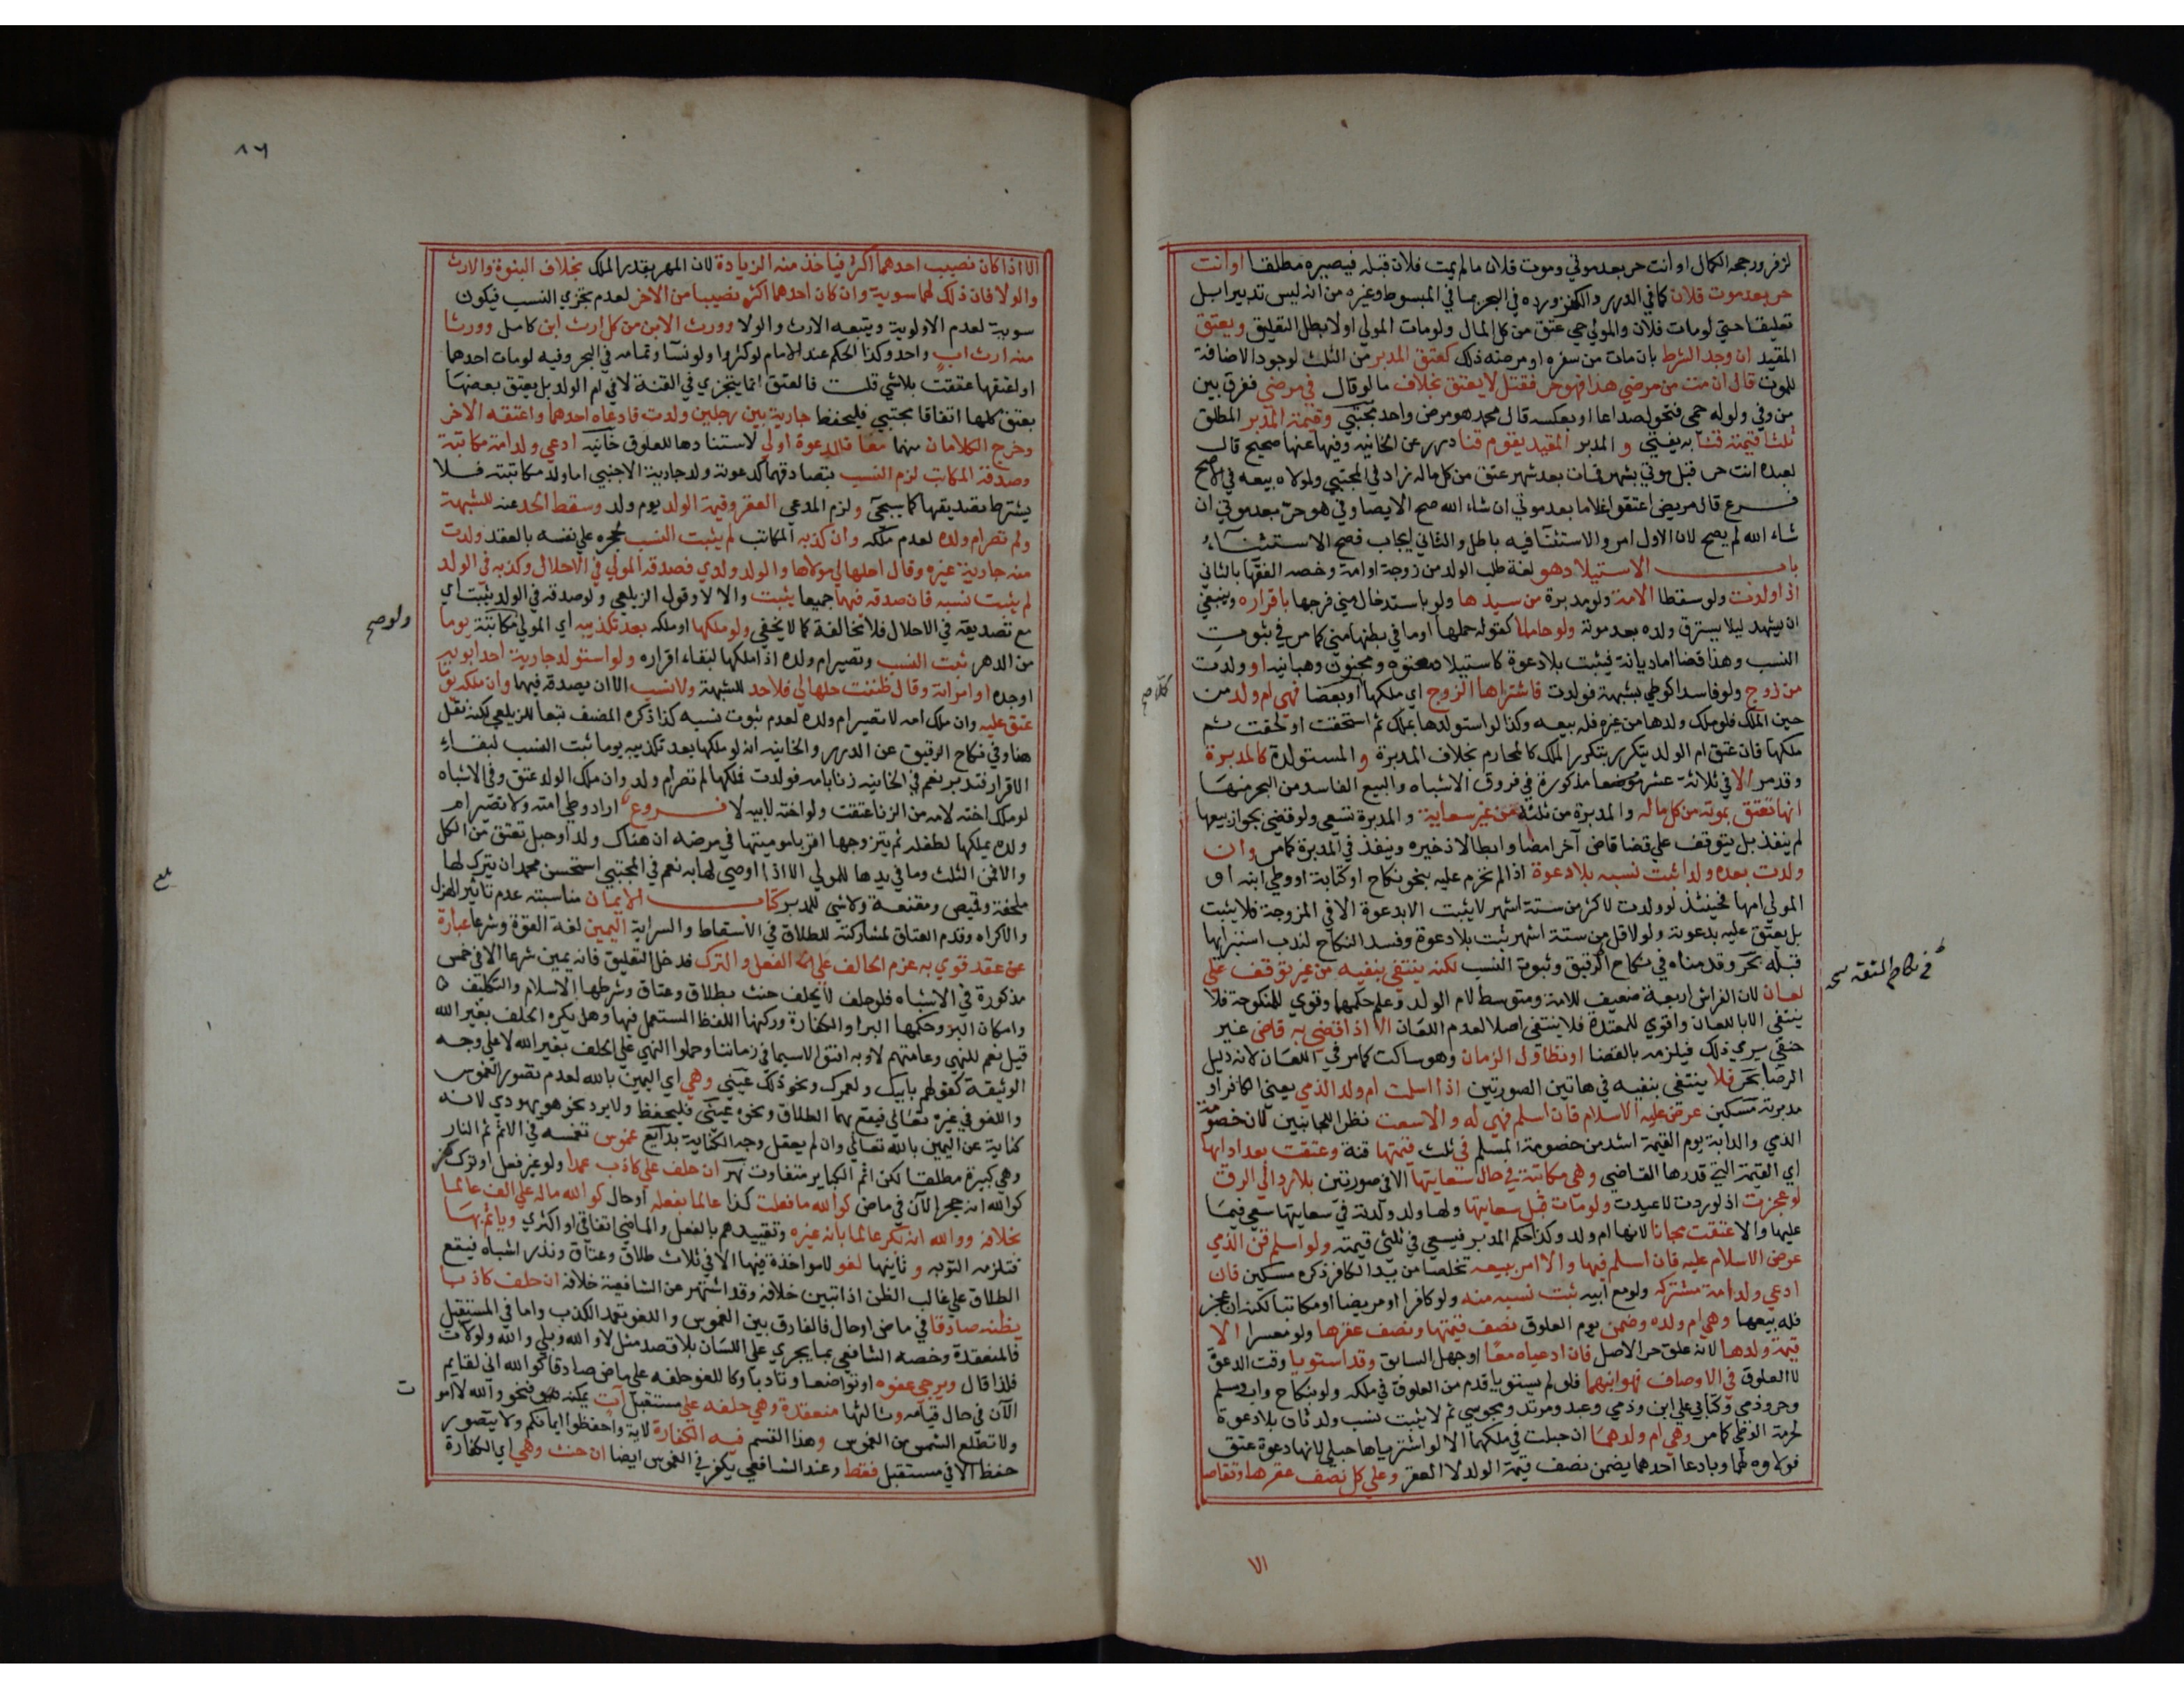 لزفر ورجحه الكمال او انت حر بعد موتي وموت فلان ما لم يمت فلان قبله فيصير مطلقا او انت
حر بعد موت فلان كما في الدرر والكنز ورده في البحر بما في المبسوط وغيره من انه ليس تدبيرا بل
تعليقا حتي لو مات فلان والمولي حي عتق من كل المال ولو مات المولي اولا بطل التعليق ويعتق
المقيد ان وجد الشرط بان مات من سفره او مرضه ذلك كعتق المدبر من الثلث لوجود الاضافة
للموت قال ان مت من مرضي هذا فهو حر فقتل لا يعتق بخلاف ما لو قال في مرضي ففرق بين
من وفي ولو له حمي فتحول صداعا او بعكسه قال محمد هو مرض واحد مجتبي وقيمة المدبر المطلق
ثلثا قيمته قنا به يفتي و المدبر المقيد يقوم قنا درر عن الخانيه وفيها عنها صحيح قال
لعبده انت حر قبل موتي بشهر فمات بعد شهر عتق من كل ماله زاد في المجتبي ولمولاه بيعه في الاصح
فرع قال مريض اعتقوا غلاما بعد موتي ان شاء الله صح الايصا وفي هو حر بعد موتي ان
شاء الله لم يصح لان الاول امر والاستثنا فيه باطل والثاني ايجاب فصح الاستثناء
باب الاستيلاد هو لغة طلب الولد من زوجة او امة وخصه الفقها بالثاني
اذا ولدت ولو سقطا الامة ولو مدبرة من سيدها ولو باستدخال مني فرجها باقراره وينبغي
ان يشهد ليلا يسترق ولده بعد موته ولو حاملا كقوله حملها او ما في بطنها مني كما مر في ثبوت
النسب وهذا قضا اما ديانة فيثبت بلا دعوة كاستيلاد معتوه ومجنون وهبانيه او ولدت
من زوج ولو فاسدا كوطي بشبهة فولدت فاشتراها الزوج اي ملكها او بعضا فهي ام ولد من
حين الملك فلو ملك ولدها من غيره فله بيعه وكذا لو استولدها بملك ثم استحقت او لحقت ثم
ملكها فان عتق ام الولد يتكرر بتكرر الملك كالمحارم بخلاف المدبرة و المستولدة كالمدبرة
وقد مر الا في ثلاثة عشر موضعا مذكورة في فروق الاشباه والبيع الفاسد من البحر منها
انها تعتق بموته من كل ماله والمدبرة من ثلثه من غير سعاية و المدبرة تسعي ولو قضي بجواز بيعها
لم ينفذ بل يتوقف علي قضا قاض آخر امضا وابطالا ذخيره وينفذ في المدبرة كما مر وان
ولدت بعده ولدا ثبت نسبه بلا دعوة اذا لم تحرم عليه بنحو نكاح او كتابة او وطي ابنه او
المولي امها فحينئذ لو ولدت لاكثر من ستة اشهر لا يثبت الا بدعوة الا في المزوجة فلا يثبت
بل يعتق عليه بدعوته ولو لاقل من ستة اشهر ثبت بلا دعوة وفسد النكاح لندب استبرايها
قبله بحر وقدمناه في نكاح الرقيق وثبوت النسب لكنه ينتفي بنفيه من غير توقف علي
لعان لان الفراش اربعة ضعيف للامة ومتوسط لام الولد وعلم حكمهما وقوي للمنكوحة فلا
ينتفي الا باللعان واقوي للمعتدة فلا ينتفي اصلا لعدم اللعان الا اذا قضي به قاض غير
حنفي يري ذلك فيلزمه بالقضا او تطاول الزمان وهو ساكت كما مر في اللعان لانه دليل
الرضا بحر فلا ينتفي بنفيه في هاتين الصورتين اذا اسلمت ام ولد الذمي يعني الكافر او
مدبرته مسكين عرض عليه الاسلام فان اسلم فهي له والا سعت نظرا للجانبين لان خصومة
الذمي والدابة يوم القيمة اشد من خصومة المسلم في ثلث قيمتها قنة وعتقت بعد ادايها
اي القيمة التي قدرها القاضي وهي مكاتبة في حال سعايتها الا في صورتين بلا رد الي الرق
لو عجزت اذ لو ردت لاعيدت ولو مات قبل سعايتها ولها ولد ولدته في سعايتها سعي فيما
عليها والا عتقت مجانا لانها ام ولد وكذا حكم المدبر فيسعي في ثلثي قيمته ولو اسلم قن الذمي
عرض الاسلام عليه فان اسلم فبها والا امر ببيعه تخلصا من يد الكافر ذكره مسكين فان
ادعي ولد امة مشتركه ولو مع ابيه ثبت نسبه منه ولو كافرا او مريضا او مكاتبا لكنه ان عجز
فله بيعها وهي ام ولده وضمن يوم العلوق نصف قيمتها ونصف عقرها ولو معسرا الا
قيمة ولدها لانه علق حر الاصل فان ادعياه معا او جهل السابق وقد استويا وقت الدعوة
لا العلوق في الاوصاف فهو ابنهما فلو لم يستويا قدم من العلوق في ملكه ولو بنكاح واب ومسلم
وحر وذمي وكتابي علي ابن وذمي وعبد ومرتد ومجوسي ثم لا يثبت نسب ولد ثان بلا دعوة
لحرمة الوطي كما مر وهي ام ولدهما ان حبلت في ملكهما لا لو اشترياها حبلي لانها دعوة عتق
فولاوه لهما وبادعا احدهما يضمن نصف قيمة الولد لا العقر وعلي كل نصف عقرها وتقاصا
كملا صح
في نكاح المتعة صح
الا
٨٦
الا اذا كان نصيب احدهما اكثر فياخذ منه الزيادة لان المهر بقدر الملك بخلاف البنوة والارث
والولا فان ذلك لهما سوية وان كان احدهما اكثر نصيبا من الاخر لعدم تجزي النسب فيكون
سوية لعدم الاولوية ويتبعه الارث والولا وورث الابن من كل ارث ابن كامل وورثا
منه ارث اب واحد وكذا الحكم عند الامام لو كثروا ولو نسآ وتمامه في البحر وفيه لو مات احدهما
او اعتقها عتقت بلا شي قلت فالعتق انما يتجزي في القنة لا في ام الولد بل يعتق بعضها
بعتق كلها اتفاقا مجتبي فليحفظ جارية بين رجلين ولدت فادعاه احدهما واعتقه الاخر
وخرج الكلامان منهما معا فالدعوة اولي لاستنادها للعلوق خانيه ادعي ولد امة مكاتبة
وصدقه المكاتب لزم النسب بتصادقهما كدعوته ولد جارية الاجنبي اما ولد مكاتبته فلا
يشترط تصديقها كما سيجئ ولزم المدعي العقر وقيمة الولد يوم ولد وسقط الحد عنه للشبهة
ولم تصر ام ولده لعدم ملكه وان كذبه المكاتب لم يثبت النسب لحجره علي نفسه بالعقد ولدت
منه جارية غيره وقال احلها لي مولاها والولد ولدي فصدقه المولي في الاحلال وكذبه في الولد
لم يثبت نسبه فان صدقه فيهما جميعا يثبت والا لا وقول الزيلعي ولو صدقه في الولد يثبت اي
مع تصديقه في الاحلال فلا مخالفة كما لا يخفي ولو ملكها او ملكه بعد تكذيبه اي المولي مكاتبة يوما
من الدهر ثبت النسب وتصير ام ولده اذا ملكها لبقاء اقراره ولو استولد جارية احد ابويه
او جده او امراته وقال ظننت حلها لي فلا حد للشبهة ولا نسب الا ان يصدقه فيهما وان ملكه يوما
عتق عليه وان ملك امه لا تصير ام ولده لعدم ثبوت نسبه كذا ذكره المصنف تبعا للزيلعي لكنه نقل
هنا وفي نكاح الرقيق عن الدرر والخانيه انه لو ملكها بعد تكذيبه يوما ثبت النسب لبقاء
الاقرار فتدبر نعم في الخانيه زنا بامه فولدت فملكها لم تصر ام ولد وان ملك الولد عتق وفي الاشباه
لو ملك اخته لامه من الزنا عتقت ولو اخته لابيه لا فروع اراد وطي امته ولا تصير ام
ولده يملكها لطفله ثم يتزوجها اقر بامومتها في مرضه ان هناك ولد او حبل تعتق من الكل
والا فمن الثلث وما في يدها للمولي الا اذا اوصي لها به نعم في المجتبي استحسن محمد ان يترك لها
ملحفة وقميص ومقنعة ولا شي للمدبر كتاب الايمان مناسبته عدم تاثير الهزل
والاكراه وقدم العتاق لمشاركته للطلاق في الاسقاط والسراية اليمين لغة القوة وشرعا عبارة
عن عقد قوي به عزم الحالف علي الفعل والترك فدخل التعليق فانه يمين شرعا الا في خمس
مذكورة في الاشباه فلو حلف لا يحلف حنث بطلاق وعتاق وشرطها الاسلام والتكليف
وامكان البر وحكمها البر او الكفارة وركنها اللفظ المستعمل فيها وهل يكره الحلف بغير الله
قيل نعم للنهي وعامتهم لا وبه افتوا لاسيما في زماننا وحملوا النهي علي الحلف بغير الله لا علي وجه
الوثيقة كقولهم بابيك ولعمرك ونحو ذلك عيني وهي اي اليمين بالله لعدم تصور الغموس
واللغو في غيره تعالي فيقع بهما الطلاق ونحوه عيني فليحفظ ولا يرد نحو هو يهودي لانه
كناية عن اليمين بالله تعالي وان لم يعقل وجه الكناية بدايع غموس تغمسه في الاثم ثم النار
وهي كبيرة مطلقا لكن اثم الكباير متفاوت نهر ان حلف علي كاذب عمدا ولو غير فعل او ترك
كوالله انه حجر الآن في ماض كوالله ما فعلت كذا عالما بفعله او حال كوالله ماله علي الف عالما
بخلافه ووالله انه بكر عالما بانه غيره وتقييدهم بالفعل والماضي اتفاقي او اكثري وياثم بها
فتلزمه التوبه و ثانيها لغو لا مواخذة فيها الا في ثلاث طلاق وعتاق ونذر اشباه فيقع
الطلاق علي غالب الظن اذا تبين خلافه وقد اشتهر عن الشافعية خلافه ان حلف كاذبا
يظنه صادقا في ماض او حال فالفارق بين الغموس واللغو تعمد الكذب واما في المستقبل
فالمنعقدة وخصه الشافعي بما يجري علي اللسان بلا قصد مثل لا والله وبلي والله ولو لآت
فلذا قال ويرجي عفوه او تواضعا وتادبا وكاللغو حلفه علي ماض صادقا كوالله اني لقايم
الآن في حال قيامه وثالثها منعقدة وهي حلفه علي مستقبل آت يمكنه فنحو والله لا اموت
ولا تطلع الشمس من الغموس وهذا القسم فيه الكفارة لاية واحفظوا ايمانكم ولا يتصور
حفظ الا في مستقبل فقط وعند الشافعي يكفر في الغموس ايضا ان حنث وهي اي الكفارة
ولو صح
بلغ